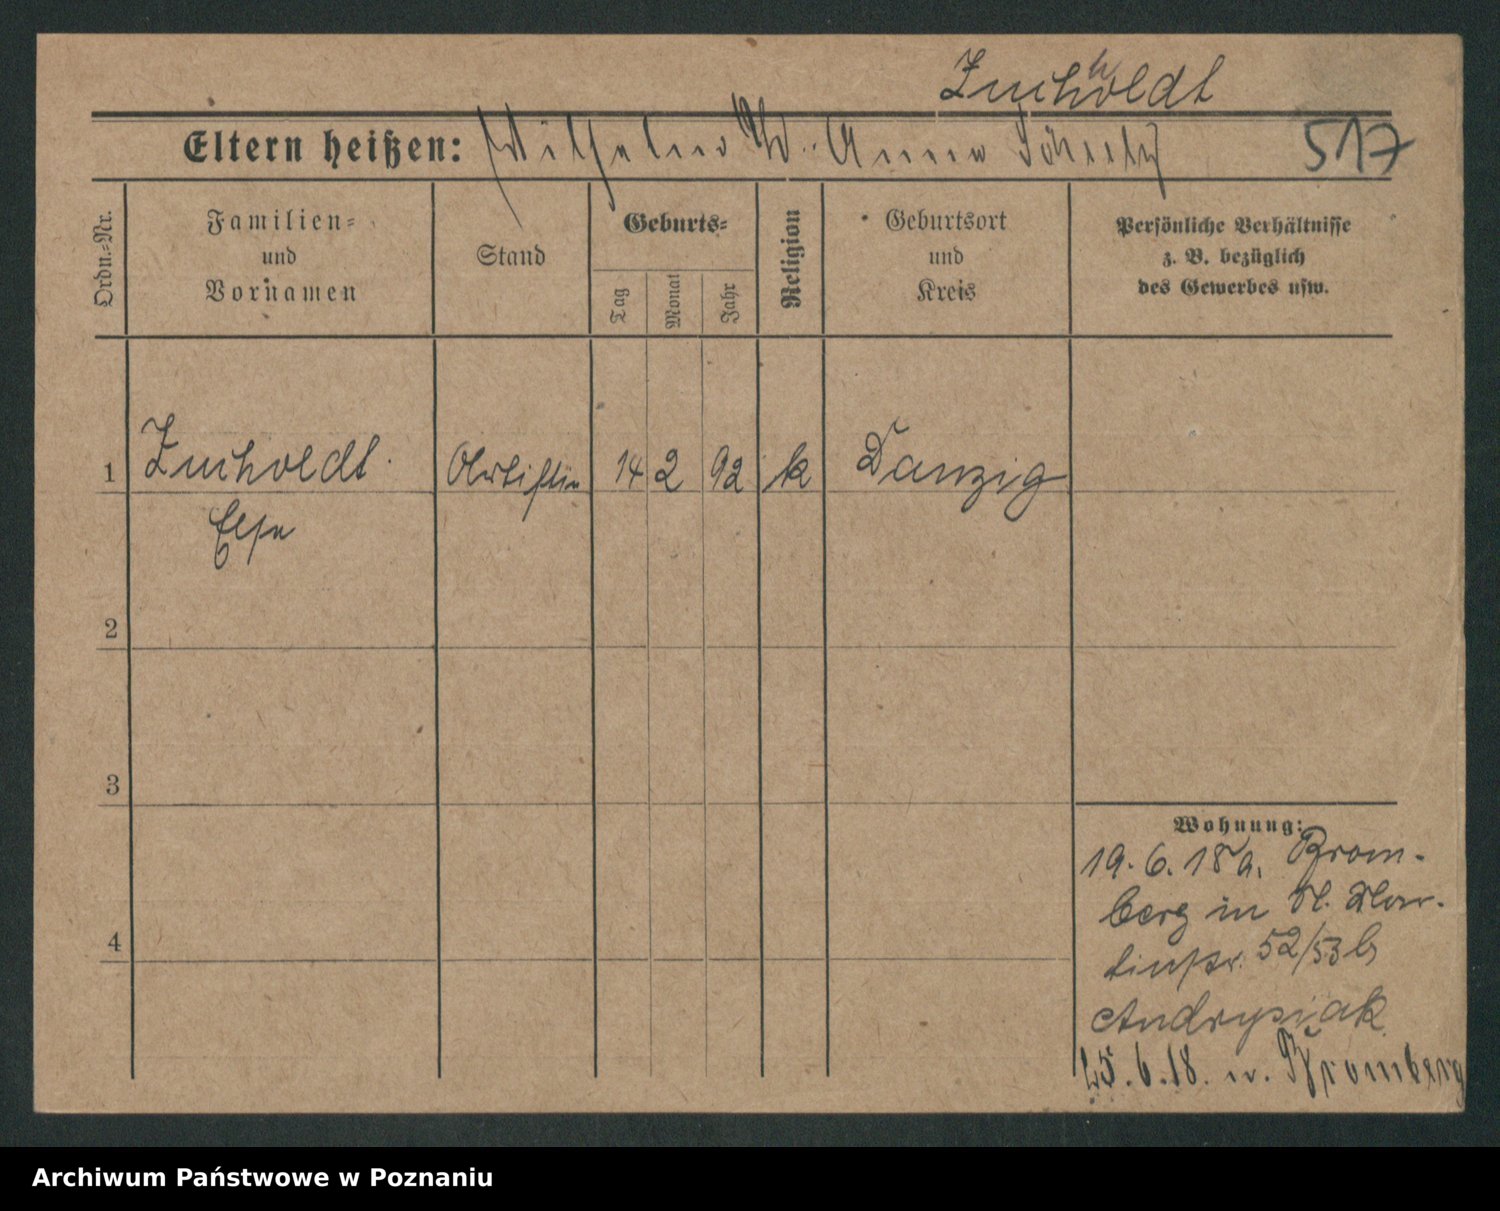 Zuchholdt
Eltern heißen: Wilhelm Z. u. Anna
517
Ordn.-Nr.
Familien- und Vornamen
Stand
Geburts-
Tag
Monat
Jahr
Religion
Geburtsort und Kreis
Persönliche Verhältnisse
z. B. bezüglich
des Gewerbes usw.
1 Zuchholdt Artistin 14 2 92 k Danzig
Else
2
3
4
Wohnung:
19.6.18 a. Brom-
berg in St. Mar-
tinstr. 52/53 b
Andrysiak
25.6.18. n. Bromberg
Archiwum Państwowe w Poznaniu